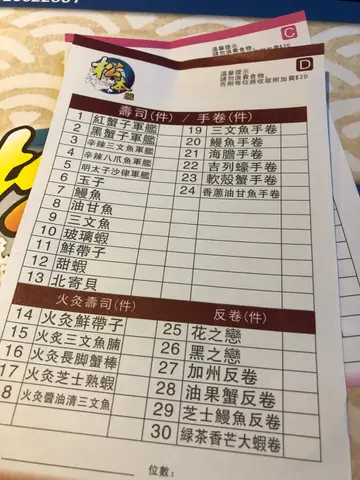 C
溫馨提示
D
溫馨提示
請勿浪費食物,
否則每位將收取附加費$20
松本
壽司(件) / 手卷(件)
1 紅蟹子軍艦
19 三文魚手卷
2 黑蟹子軍艦
20 鰻魚手卷
3 辛辣三文魚軍艦
21 海膽手卷
4 辛辣八爪魚軍艦
22 吉列蠔手卷
5 明太子沙律軍艦
23 軟殼蟹手卷
6 玉子
24 香蔥油甘魚手卷
7 鰻魚
8 油甘魚
9 三文魚
10 玻璃蝦
11 鮮帶子
12 甜蝦
13 北寄貝
火灸壽司(件)
反卷(件)
14 火灸鮮帶子
25 花之戀
15 火炙三文魚腩
26 黑之戀
16 火灸長脚蟹棒
27 加州反卷
17 火灸芝士熟蝦
28 油果蟹反卷
8 火灸醬油漬三文魚
29 芝士鰻魚反卷
30 緑茶香芒大蝦卷
位數: